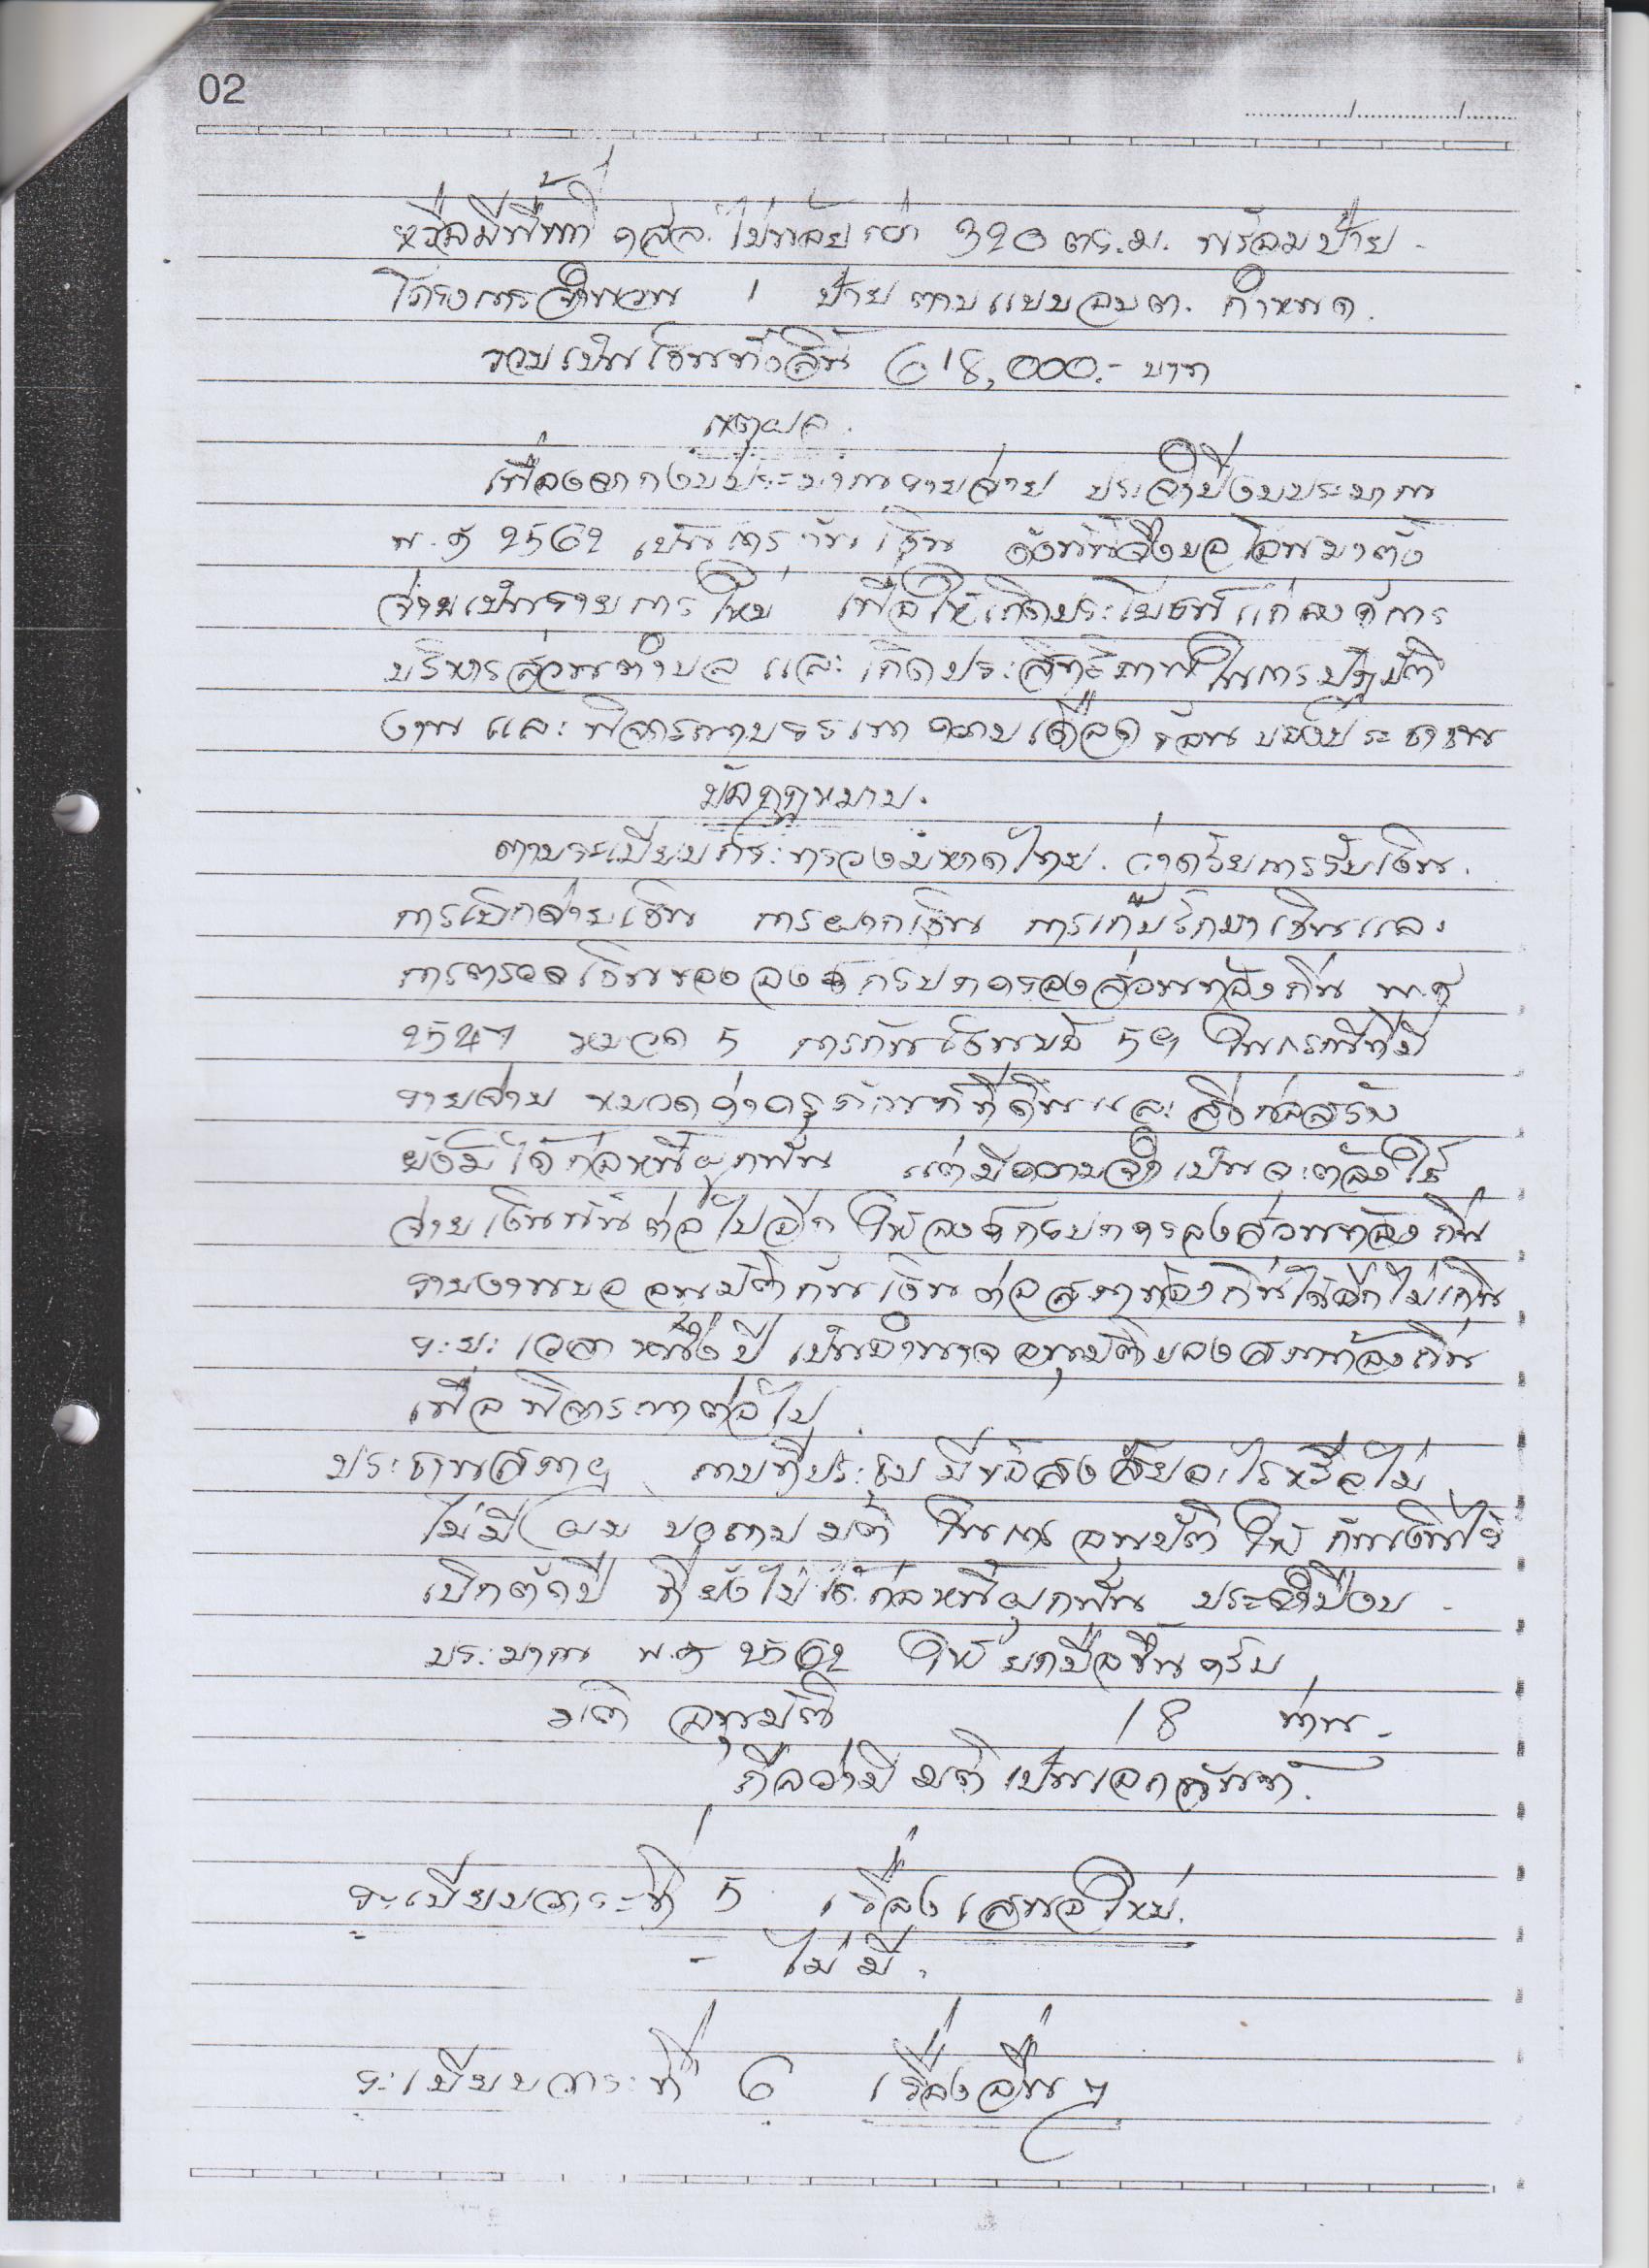 02
หรือมีพื้นที่ คสล. ไม่น้อยกว่า 320 ตร.ม. พร้อมป้าย
โครงการจำนวน 1 ป้าย ตามแบบ อบต. กำหนด.
รวมเป็นเงินทั้งสิ้น 618,000.- บาท
เหตุผล.
เนื่องจากงบประมาณรายจ่าย ประจำปีงบประมาณ
พ.ศ 2562 เป็นการกันเงิน ดังนั้นจึงขอโอนมาตั้ง
จ่ายเป็นรายการใหม่ เพื่อให้เกิดประโยชน์แก่องค์การ
บริหารส่วนตำบล และเกิดประสิทธิภาพในการปฏิบัติ
งาน และพิจารณาบรรเทาความเดือดร้อนของประชาชน
ข้อกฎหมาย.
ตามระเบียบกระทรวงมหาดไทย. ว่าด้วยการรับเงิน.
การเบิกจ่ายเงิน การฝากเงิน การเก็บรักษาเงินและ
การตรวจเงินขององค์กรปกครองส่วนท้องถิ่น พ.ศ
2547 หมวด 5 การกันเงินข้อ 59 ในกรณีที่มี
รายจ่าย หมวดค่าครุภัณฑ์ที่ดินและสิ่งก่อสร้าง
ยังมิได้ก่อหนี้ผูกพัน แต่มีความจำเป็นจะต้องใช้
จ่ายเงินนั้นต่อไปอีก ให้องค์กรปกครองส่วนท้องถิ่น
รายงานขออนุมัติกันเงินต่อสภาท้องถิ่นได้อีกไม่เกิน
ระยะเวลาหนึ่งปี เป็นอำนาจอนุมัติของสภาท้องถิ่น
เพื่อพิจารณาต่อไป
ประธานสภาฯ ถามที่ประชุม มีข้อสงสัยอะไรหรือไม่
ไม่มี ผมขอถามมติ ในการอนุมัติ ให้กันเงินไว้
เบิกตัดปี ที่ยังไม่ได้ก่อหนี้ผูกพัน ประจำปีงบ
ประมาณ พ.ศ 2562 ให้ยกมือขึ้นครับ
มติ อนุมัติ 18 ท่าน.
ถือว่ามีมติเป็นเอกฉันท์.
ระเบียบวาระที่ 5 เรื่องเสนอใหม่.
- ไม่มี.
ระเบียบวาระที่ 6 เรื่องอื่นๆ